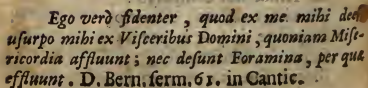 Ego verò fidenter, quod ex me mihi deeſt
uſurpo mihi ex Viſceribus Domini, quoniam Miſe-
ricordia affluunt; nec deſunt Foramina, per quæ
effluunt. D. Bern. ſerm. 61. in Cantic.